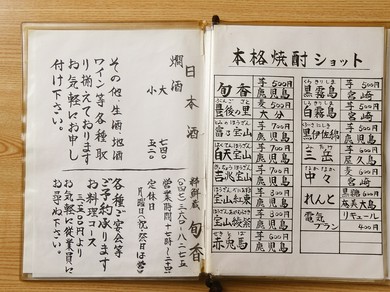 日本酒
燗酒
大 七四〇
小 五二〇
その他・生酒・地酒
ワイン等各種取
り揃えております
お気軽にお申し
付け下さい。
粋鮮蔵 旬香
営業時間 十七時〜二十四時
定休日
月曜日(祝祭日は営
各種ご宴会等
ご予約承ります
お料理コース
三、五〇〇円より
お気軽に従業員に
お尋ね下さい。
本格焼酎ショット
旬香 芋 500円 鹿児島
豊後の里 麦 500円 大分
富乃宝山 芋 700円 鹿児島
白天宝山 芋 700円 鹿児島
吉兆宝山 芋 700円 鹿児島
宝山紅東 芋 鹿児島
宝山綾紫 芋 鹿児島
赤兎馬 芋 鹿児島
黒霧島 芋 500円 宮崎
白霧島 芋 500円 宮崎
黒伊佐錦 芋 500円 鹿児島
三岳 芋 600円 屋久島
中々 麦 600円 宮崎
れんと 黒糖 600円 奄美大島
電気ブラン リキュール 400円